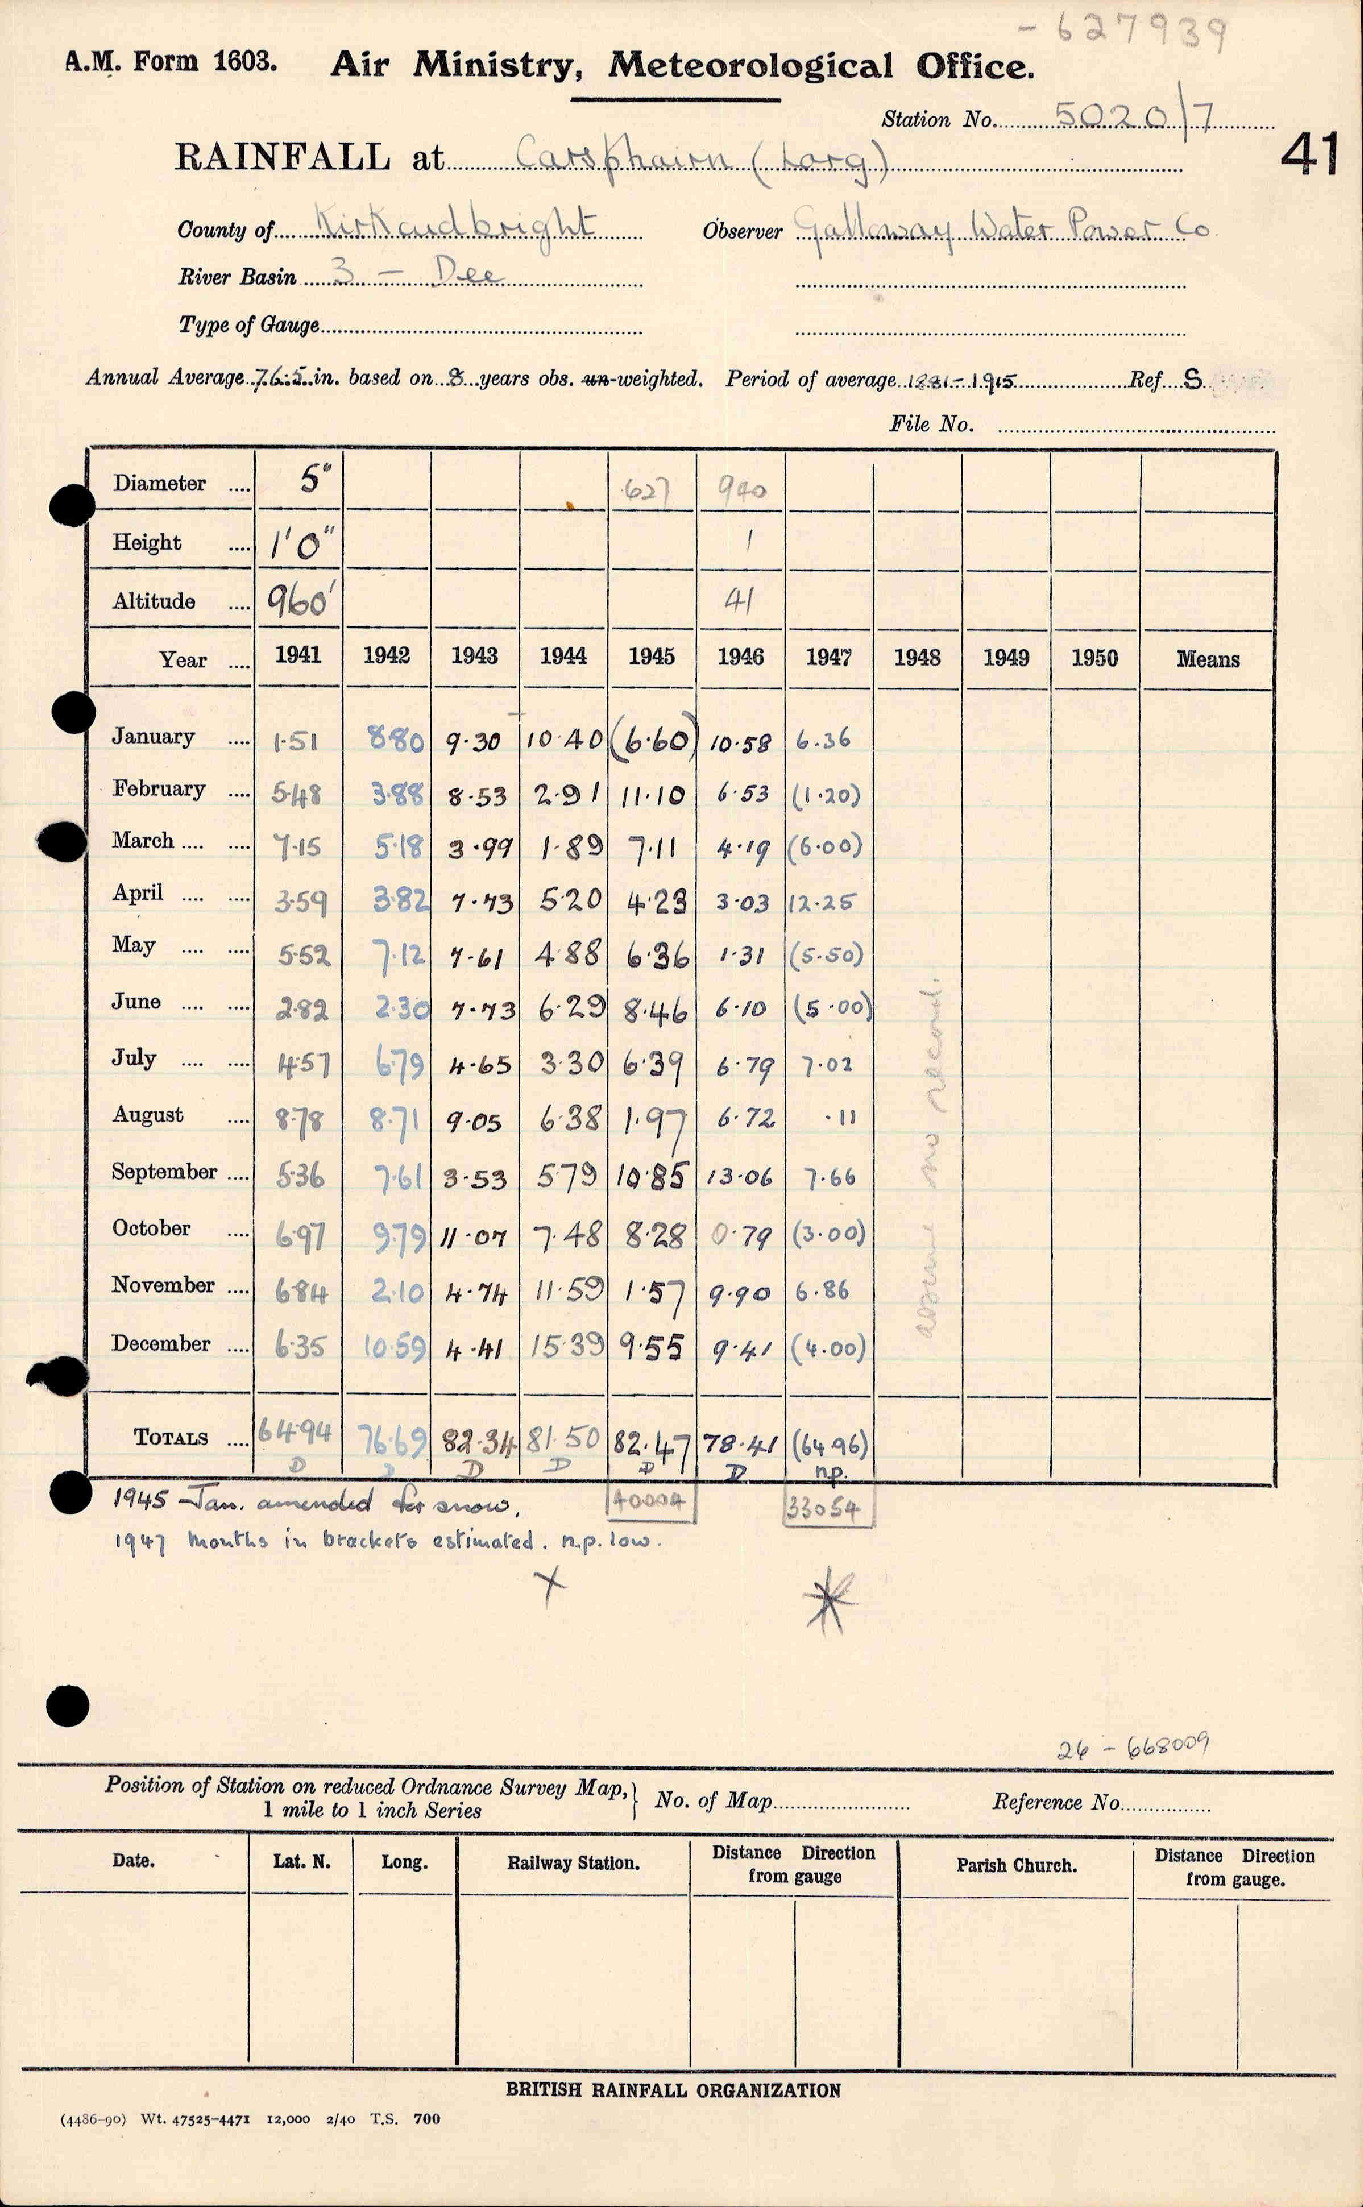 - 627939
A.M. Form 1603. Air Ministry, Meteorological Office.
Station No. 5020/7
41
RAINFALL at Carsphairn (Lorg)
County of Kirkcudbright Observer Galloway Water Power Co
River Basin 3 - Dee
Type of Gauge
Annual Average 76.5 in. based on 8 years obs. un-weighted. Period of average 1881-1915 Ref S
File No.
Diameter .... 5" 627 940
Height .... 1'0" 1
Altitude .... 960' 41
Year .... 1941 1942 1943 1944 1945 1946 1947 1948 1949 1950 Means
January .... 1.51 8.80 9.30 10.40 (6.60) 10.58 6.36
February .... 5.48 3.88 8.53 2.91 11.10 6.53 (1.20)
March .... .... 7.15 5.18 3.99 1.89 7.11 4.19 (6.00)
April .... .... 3.59 3.82 7.73 5.20 4.23 3.03 12.25
May .... .... 5.52 7.12 7.61 4.88 6.36 1.31 (5.50)
June .... .... 2.82 2.30 7.73 6.29 8.46 6.10 (5.00)
July .... .... 4.57 6.79 4.65 3.30 6.39 6.79 7.02
August .... 8.78 8.71 9.05 6.38 1.97 6.72 .11
September .... 5.36 7.61 3.53 5.79 10.85 13.06 7.66
October .... 6.97 9.79 11.07 7.48 8.28 0.79 (3.00)
November .... 6.84 2.10 4.74 11.59 1.57 9.90 6.86
December .... 6.35 10.59 4.41 15.39 9.55 9.41 (4.00)
assume no record.
TOTALS .... 64.94 76.69 82.34 81.50 82.47 78.41 (64.96)
D D D D D D n.p.
1945 Jan. amended for snow. 40004 33054
1947 Months in brackets estimated. n.p. low.
26 - 668009
Position of Station on reduced Ordnance Survey Map, 1 mile to 1 inch Series } No. of Map Reference No.
Date. Lat. N. Long. Railway Station. Distance Direction from gauge Parish Church. Distance Direction from gauge.
BRITISH RAINFALL ORGANIZATION
(4486-90) Wt. 47525-4471 12,000 2/40 T.S. 700